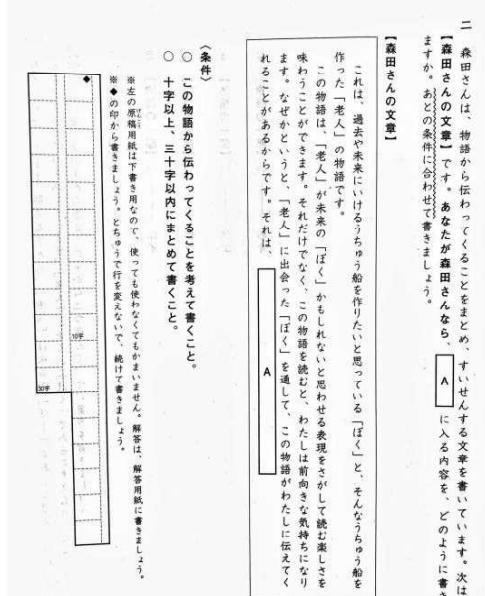 二　森田さんは、物語から伝わってくることをまとめ、すいせんする文章を書いています。次は
【森田さんの文章】です。あなたが森田さんなら、 A に入る内容を、どのように書き
ますか。あとの条件に合わせて書きましょう。
【森田さんの文章】
これは、過去や未来にいけるうちゅう船を作りたいと思っている「ぼく」と、そんなうちゅう船を
作った「老人」の物語です。
この物語は、「老人」が未来の「ぼく」かもしれないと思わせる表現をさがして読む楽しさを
味わうことができます。それだけでなく、この物語を読むと、わたしは前向きな気持ちになり
ます。なぜかというと、「老人」に出会った「ぼく」を通して、この物語がわたしに伝えてく
れることがあるからです。それは、 A
〈条件〉
○　この物語から伝わってくることを考えて書くこと。
○　十字以上、三十字以内にまとめて書くこと。
※左の原稿用紙は下書き用なので、使っても使わなくてもかまいません。解答は、解答用紙に書きましょう。
※◆の印から書きましょう。とちゅうで行を変えないで、続けて書きましょう。
◆
10字
30字